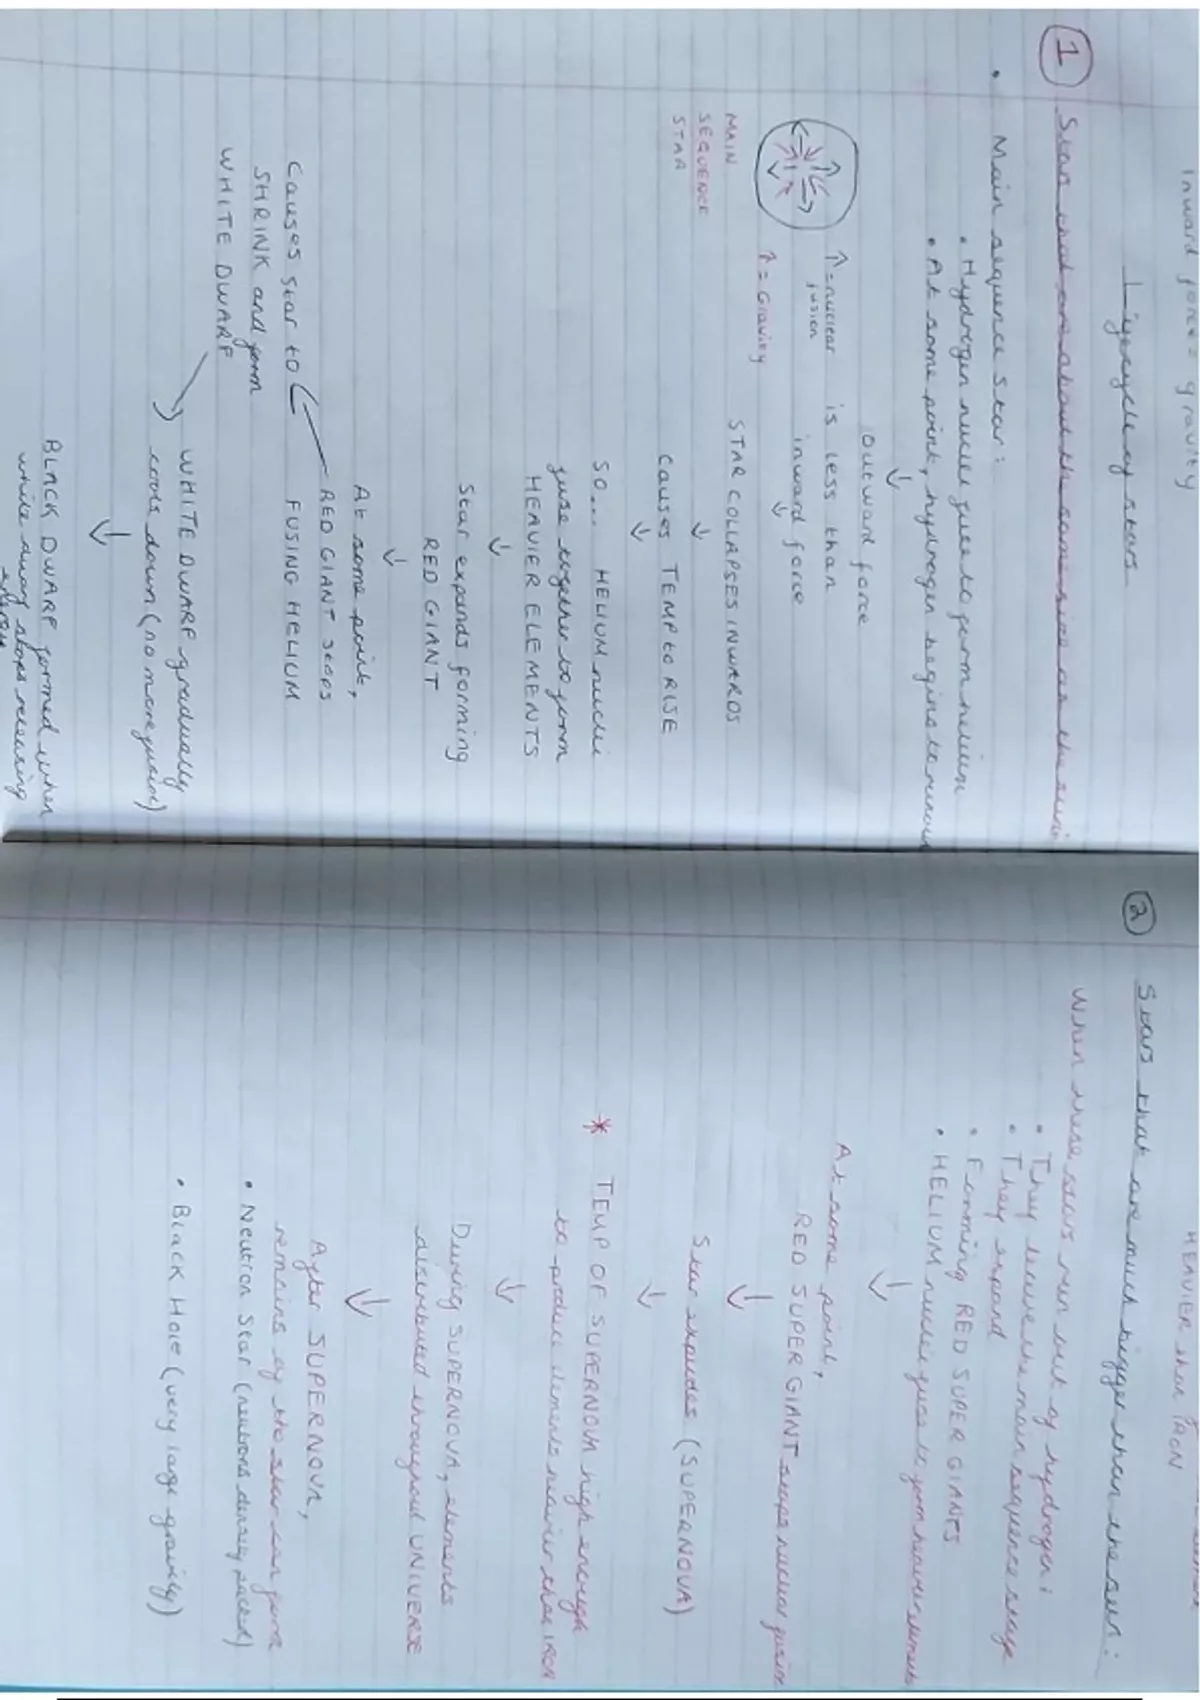 Inward force = gravity
Lifecycle of stars
1 Stars that are about the same size as the sun:
• Main sequence star:
• Hydrogen nuclei fuse to form helium
• At some point, hydrogen begins to run out
↓
Outward force
is less than
↓
inward force
↑ = nuclear
fusion
↑ = Gravity
MAIN
SEQUENCE
STAR
STAR COLLAPSES INWARDS
↓
Causes TEMP to RISE
↓
SO... HELIUM nuclei
fuse together to form
HEAVIER ELEMENTS
↓
Star expands forming
RED GIANT
↓
At some point,
RED GIANT stops
FUSING HELIUM
Causes star to
SHRINK and form
WHITE DWARF
WHITE DWARF gradually
cools down (no more fusion)
↓
BLACK DWARF formed when
white dwarf stops releasing
energy
HEAVIER than IRON
2 Stars that are much bigger than the sun:
When these stars run out of hydrogen:
• They leave the main sequence stage
• They expand
• Forming RED SUPER GIANTS
• HELIUM nuclei fuse to form heavier elements
↓
At some point,
RED SUPER GIANT stops nuclear fusion
↓
Star explodes (SUPERNOVA)
↓
* TEMP OF SUPERNOVA high enough
to produce elements heavier than IRON
↓
During SUPERNOVA, elements
distributed throughout UNIVERSE
↓
After SUPERNOVA,
remains of the star can form
• Neutron Star (neutrons densely packed)
• Black Hole (very large gravity)